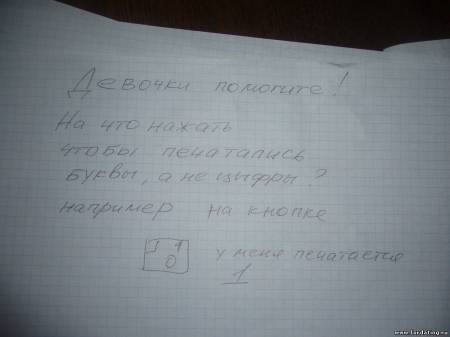 Девочки помогите!
На что нажать
чтобы печатались
буквы, а не цыфры?
например на кнопке
J 1
0
у меня печатается
1
www.fordating.ru